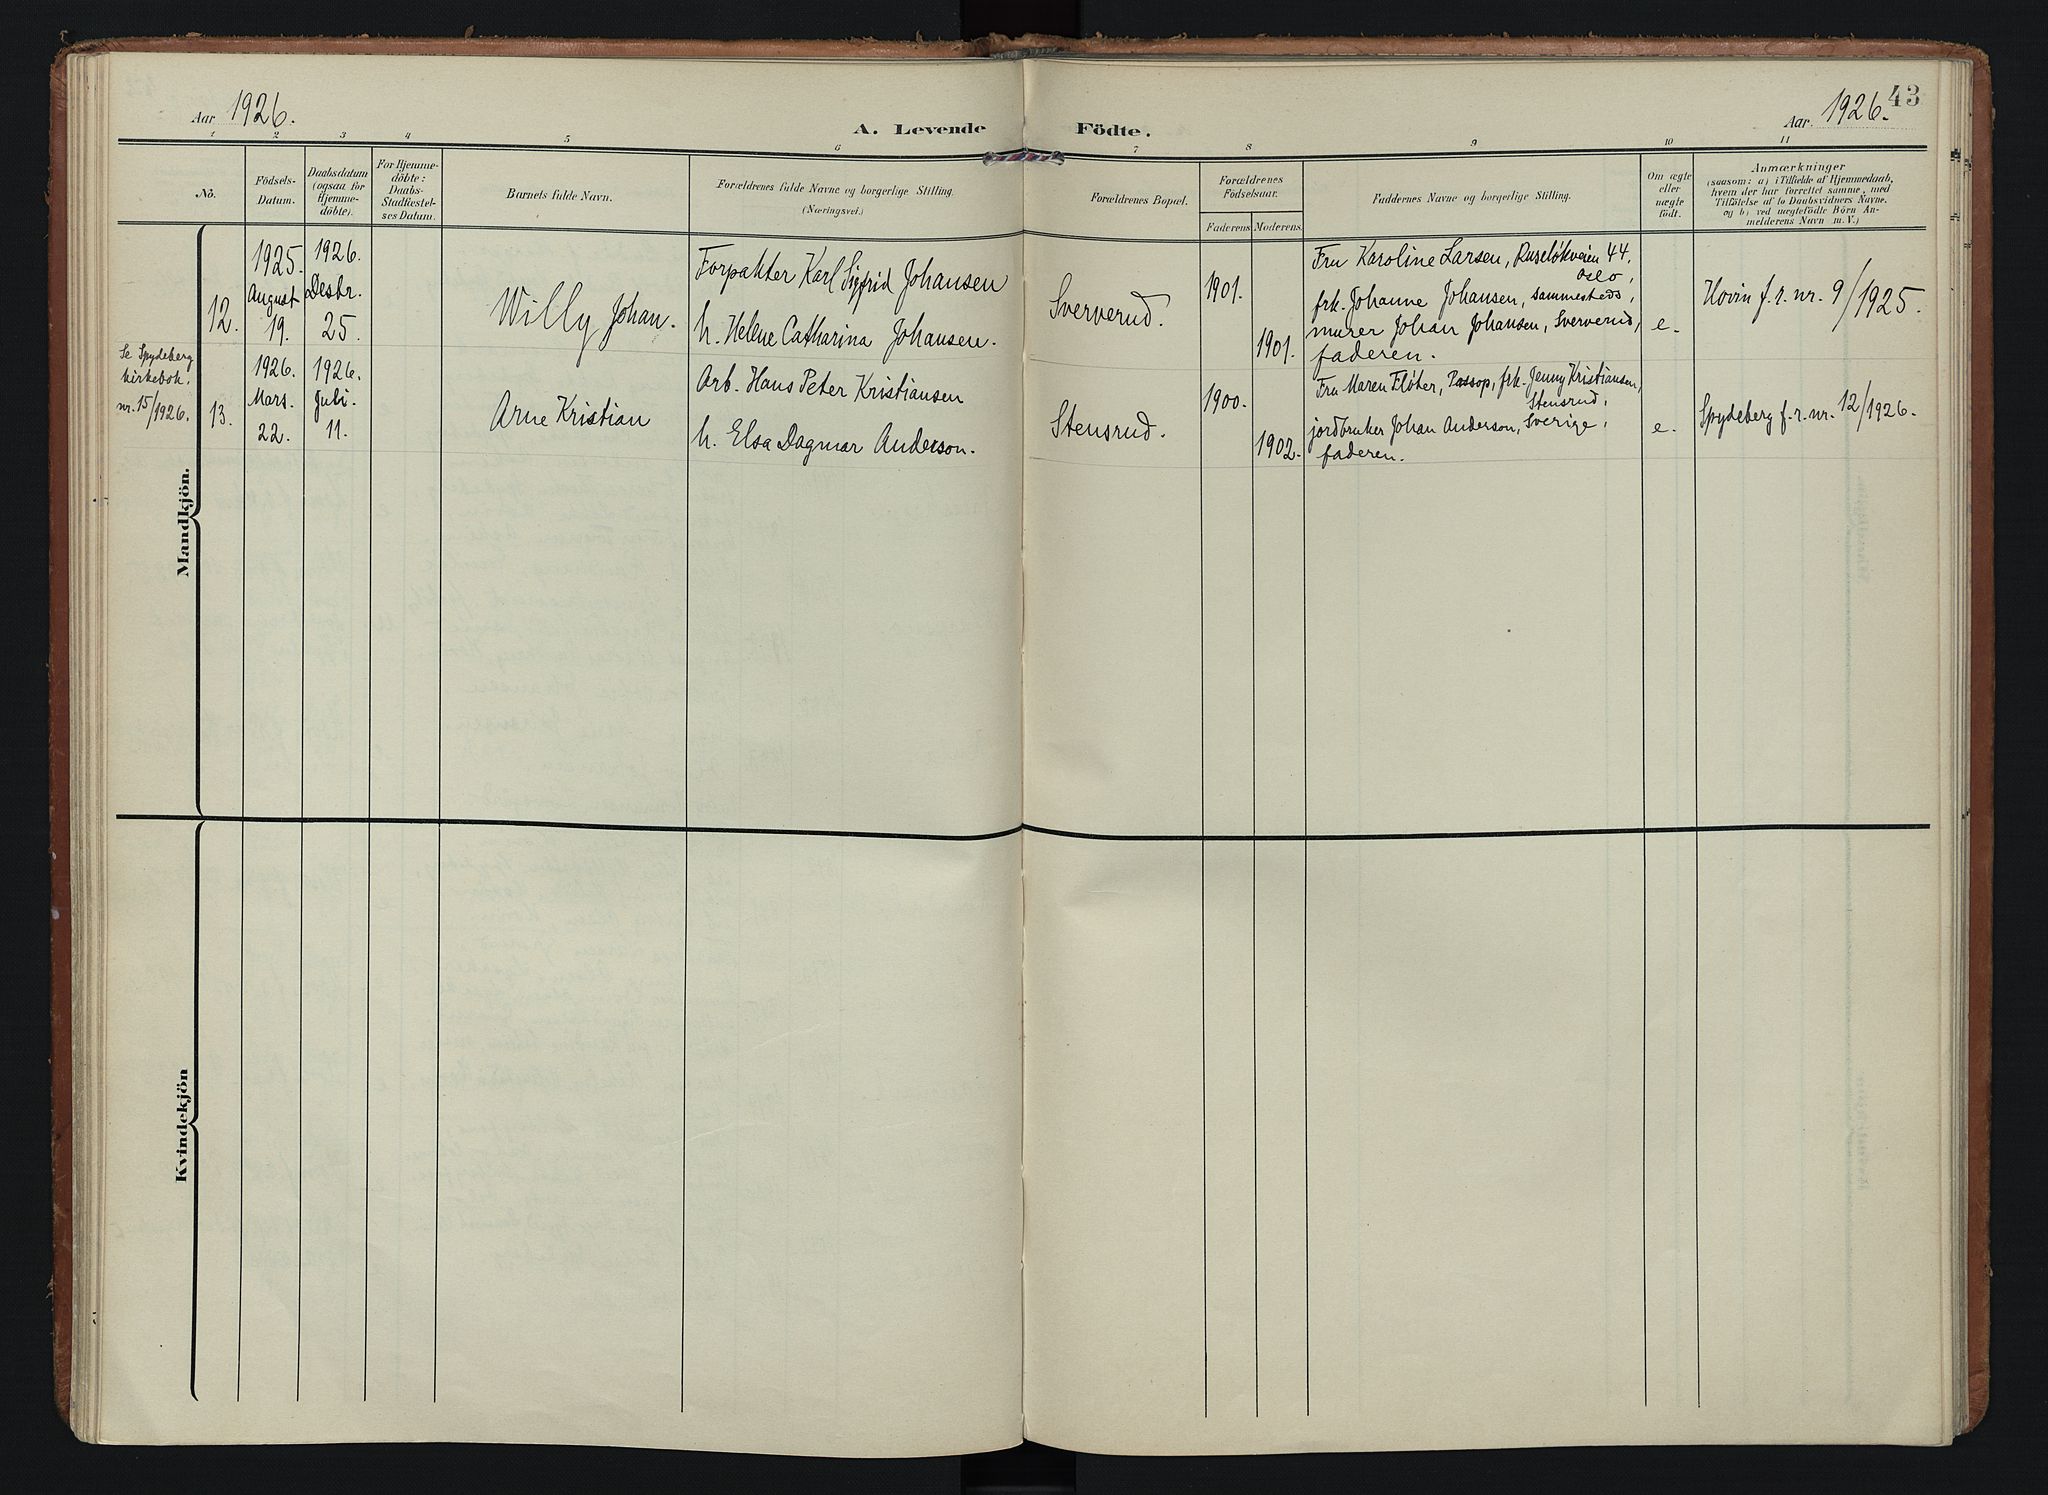 Aar 1926.
A. Levende Födte.
Aar. 1926.
43
1 2 3 4 5 6 7 8 9 10 11
No.
Födsels-
Datum.
Daabsdatum
(ogsaa for
Hjemme-
döbte).
For Hjemme-
döbte:
Daabs-
Stadfæstel-
ses Datum.
Barnets fulde Navn.
Forældrenes fulde Navne og borgerlige Stilling.
(Næringsvei.)
Forældrenes Bopæl.
Forældrenes
Födselsaar.
Faderens Moderens.
Faddernes Navne og borgerlige Stilling.
Om ægte
eller
uægte
født.
Anmærkninger
(saasom: a) i Tilfælde af Hjemmedaab,
hvem der har forrettet samme, med
Tilföielse af to Daabsvidners Navne,
og b) ved uægtefödte Börn An-
melderens Navn m. V.)
Mandkjön.
12.
1925.
August
19.
1926.
Desbr.
25.
Willy Johan.
Forpakter Karl Sigfrid Johansen
h. Helene Catharina Johansen.
Sververud.
1901.
1901.
Fru Karoline Larsen, Ruseløkveien 44,
Oslo,
frk. Johanne Johansen, sammesteds,
murer Johan Johansen, Sververud,
faderen.
e.
Hovin f.r. nr. 9/1925.
Se Spydeberg
kirkebok.
nr. 15/1926.
13.
1926.
Mars.
22.
1926.
Juli.
11.
Arne Kristian
Arb. Hans Peter Kristiansen
h. Elsa Dagmar Anderson.
Stensrud.
1900.
1902.
Fru Maren Fløter, Passop, frk. Jenny Kristiansen,
Stensrud,
jordbruker Johan Anderson, Sverige,
faderen.
e.
Spydeberg f.r. nr. 12/1926.
Kvindekjön